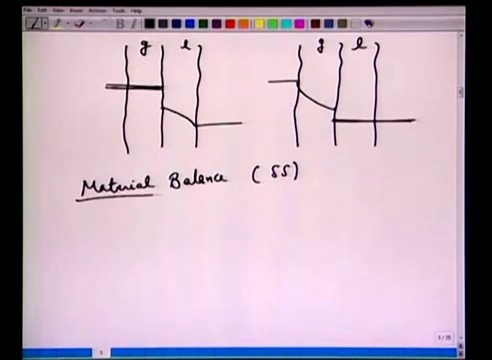 File Edit View Insert Actions Tools Help
B I U
g l g l
Material Balance (SS)